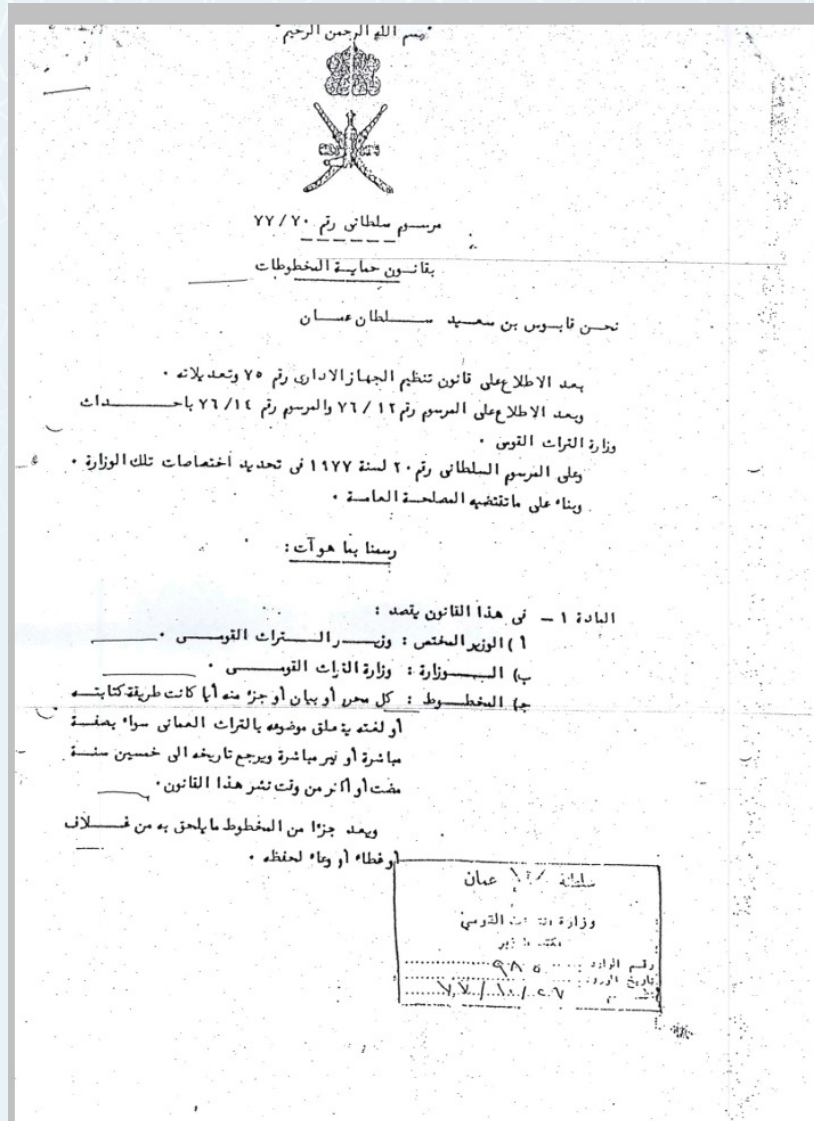 بسم الله الرحمن الرحيم
مرسوم سلطاني رقم ٧٧/٧٠
بقانون حماية المخطوطات
نحن قابوس بن سعيد سلطان عمان
بعد الاطلاع على قانون تنظيم الجهاز الادارى رقم ٧٥ وتعديلاته .
وبعد الاطلاع على المرسوم رقم ٧٦/١٢ والمرسوم رقم ٧٦/١٤ باحداث
وزارة التراث القومى .
وعلى المرسوم السلطانى رقم ٢٠ لسنة ١٩٧٧ فى تحديد اختصاصات تلك الوزارة .
وبناء على ماتقتضيه المصلحة العامة .
رسمنا بما هو آت :
المادة ١ – فى هذا القانون يقصد :
أ ) الوزير المختص : وزير التراث القومى .
ب) الوزارة : وزارة التراث القومى .
ج) المخطوط : كل محرر أو بيان أو جزء منه أيا كانت طريقة كتابته
أو لغته يتعلق موضوعه بالتراث العمانى سواء بصفة
مباشرة أو غير مباشرة ويرجع تاريخه الى خمسين سنة
مضت أو أكثر من وقت نشر هذا القانون .
ويعد جزءا من المخطوط مايلحق به من غلاف
أو غطاء أو وعاء لحفظه .
سلطنة عمان
وزارة التراث القومي
مكتب الوزير
رقم الوارد : ٩٨٥
تاريخ الورود
٧٧/١٠/٢٦